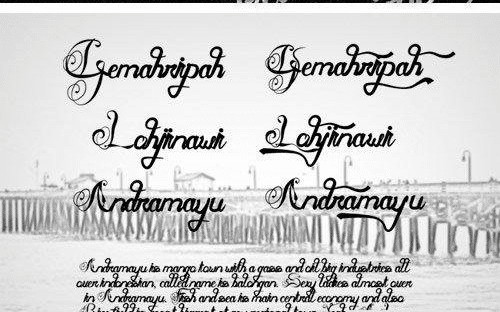 Gemahripah Gemahripah
Lohjinawi Lohjinawi
Andramayu Andramayu
Andramayu is mango town with a gass and oil big industries all
over indonesian, called name is balongan. Sexy ladies almost over
in Andramayu. Fish and sea is main central economy and also